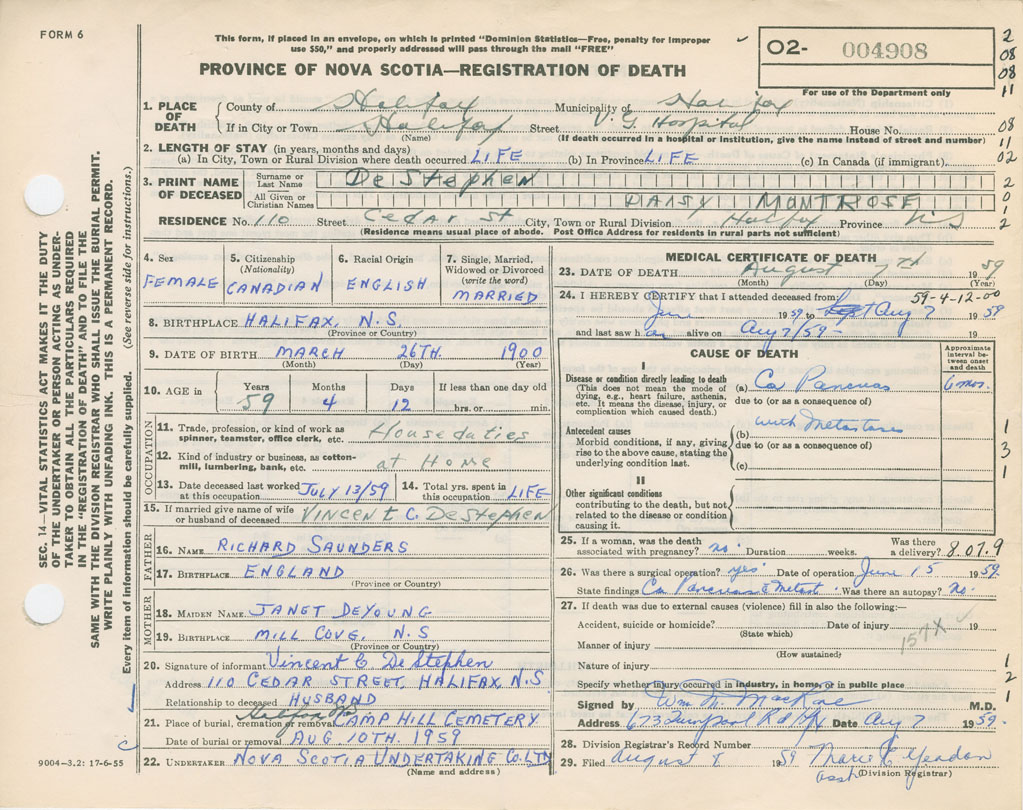 FORM 6
This form, if placed in an envelope, on which is printed "Dominion Statistics—Free, penalty for improper
use $50," and properly addressed will pass through the mail "FREE"
PROVINCE OF NOVA SCOTIA—REGISTRATION OF DEATH
O2- 004908
For use of the Department only
2
08
08
11
08
11
02
2
0
1
2
1
3
1
1
2
1
SEC. 14—VITAL STATISTICS ACT MAKES IT THE DUTY
OF THE UNDERTAKER OR PERSON ACTING AS UNDER-
TAKER TO OBTAIN ALL THE PARTICULARS REQUIRED
IN THE "REGISTRATION OF DEATH" AND TO FILE THE
SAME WITH THE DIVISION REGISTRAR WHO SHALL ISSUE THE BURIAL PERMIT.
WRITE PLAINLY WITH UNFADING INK. THIS IS A PERMANENT RECORD.
Every item of information should be carefully supplied. (See reverse side for instructions.)
1. PLACE OF DEATH
County of Halifax Municipality of Halifax
If in City or Town Halifax Street V. G Hospital House No.
(Name) (If death occurred in a hospital or institution, give the name instead of street and number)
2. LENGTH OF STAY (in years, months and days)
(a) In City, Town or Rural Division where death occurred LIFE (b) In Province LIFE (c) In Canada (if immigrant)
3. PRINT NAME OF DECEASED
Surname or Last Name DeSTEPHEN
All Given or Christian Names DAISY MONTROSE
RESIDENCE No. 110 Street Cedar St City, Town or Rural Division Halifax Province N S
(Residence means usual place of abode. Post Office Address for residents in rural parts not sufficient)
4. Sex FEMALE
5. Citizenship (Nationality) CANADIAN
6. Racial Origin ENGLISH
7. Single, Married, Widowed or Divorced (write the word) MARRIED
8. BIRTHPLACE HALIFAX, N.S.
(Province or Country)
9. DATE OF BIRTH MARCH 26TH. 1900
(Month) (Day) (Year)
10. AGE in Years 59 Months 4 Days 12 If less than one day old hrs. or min.
OCCUPATION
11. Trade, profession, or kind of work as
spinner, teamster, office clerk, etc. Houseduties
12. Kind of industry or business, as cotton-
mill, lumbering, bank, etc. at Home
13. Date deceased last worked
at this occupation JULY 13/59
14. Total yrs. spent in
this occupation LIFE
15. If married give name of wife
or husband of deceased VINCENT C. DESTEPHEN
FATHER
16. NAME RICHARD SAUNDERS
17. BIRTHPLACE ENGLAND
(Province or Country)
MOTHER
18. MAIDEN NAME JANET DEYOUNG
19. BIRTHPLACE MILL COVE, N.S
(Province or Country)
20. Signature of informant Vincent C DeStephen
Address 110 CEDAR STREET, HALIFAX, N.S
Relationship to deceased HUSBAND
21. Place of burial, cremation or removal Halifax NS CAMP HILL CEMETERY
Date of burial or removal AUG. 10TH. 1959
22. UNDERTAKER NOVA SCOTIA UNDERTAKING CO. LTD
(Name and address)
9004-3.2: 17-6-55
MEDICAL CERTIFICATE OF DEATH
23. DATE OF DEATH August 7th 1959
(Month) (Day) (Year)
24. I HEREBY CERTIFY that I attended deceased from: 59-4-12-00
June 1959 to Aug 7 1959
and last saw her alive on Aug 7/59 19
CAUSE OF DEATH
Approximate interval between onset and death
I
Disease or condition directly leading to death
(This does not mean the mode of
dying, e.g., heart failure, asthenia,
etc. It means the disease, injury, or
complication which caused death.)
(a) Ca Pancreas 6 mos.
due to (or as a consequence of)
Antecedent causes
Morbid conditions, if any, giving
rise to the above cause, stating the
underlying condition last.
(b) with Metastases
due to (or as a consequence of)
(c)
II
Other significant conditions
contributing to the death, but not
related to the disease or condition
causing it.
25. If a woman, was the death
associated with pregnancy? no. Duration weeks. Was there a delivery? 8.07.9
26. Was there a surgical operation? yes Date of operation June 15 1959
State findings Ca Pancreas & Metast Was there an autopsy? No.
27. If death was due to external causes (violence) fill in also the following:—
Accident, suicide or homicide? Date of injury 19
(State which)
157X
Manner of injury
(How sustained)
Nature of injury
Specify whether injury occurred in industry, in home, or in public place
Signed by Wm M. MacRae M.D.
Address 673 Quinpool Rd Hfx Date Aug 7 1959.
28. Division Registrar's Record Number
29. Filed August 8 1959 Marie C Yeadon
asst (Division Registrar)